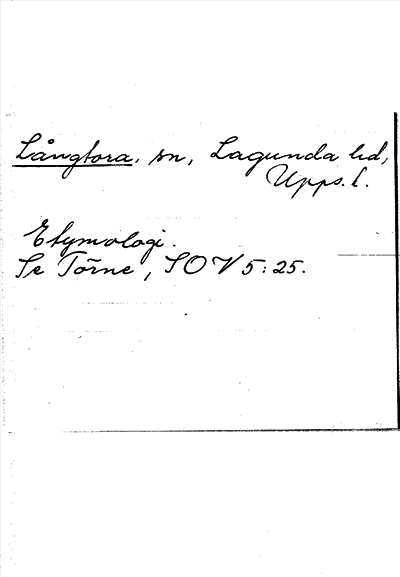 Långtora, sn, Lagunda hd,
Upps. l.
Etymologi.
Se Törne, SOV 5:25.